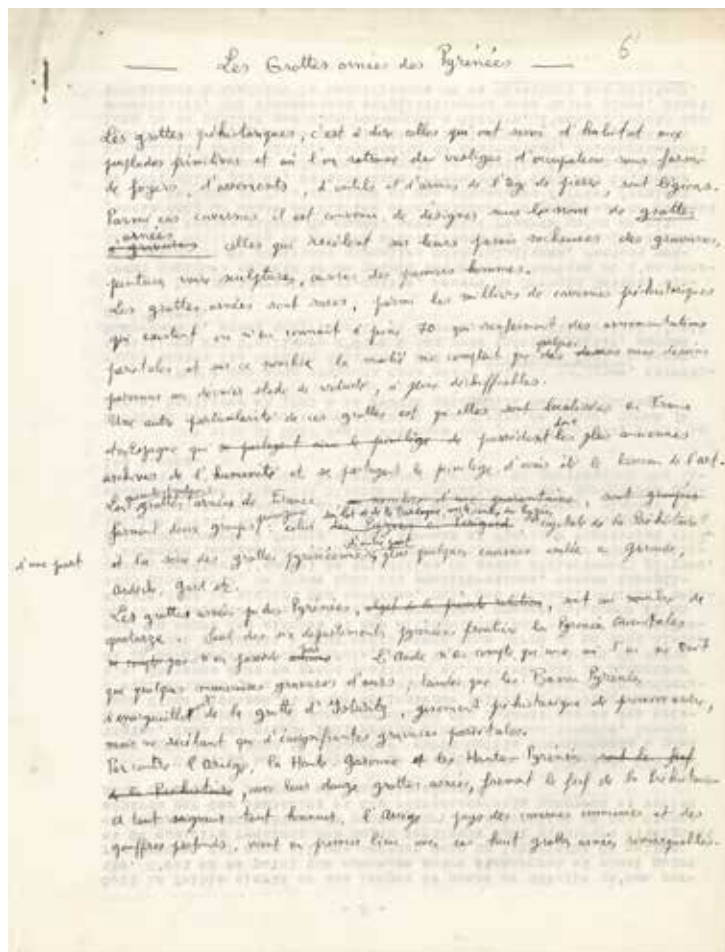 Les Grottes ornées des Pyrénées
6
Les grottes préhistoriques, c'est à dire celles qui ont servi d'habitat aux
peuplades primitives et où l'on retrouve des vestiges d'occupation sous forme
de foyers, d'ossements, d'outils et d'armes de l'âge de pierre, sont légions.
Parmi ces cavernes il est convenu de désigner sous le nom de grottes
ornées
celles qui recèlent sur leurs parois rocheuses des gravures,
peintures voire sculptures, œuvres des premiers hommes.
Les grottes ornées sont rares, parmi les milliers de cavernes préhistoriques
qui existent on n'en connait à peine 70 qui renferment des ornementations
pariétales et sur ce nombre la moitié ne comptent que quelques dessins
parvenus au dernier stade de vétusté, à peine déchiffrables.
Une autre particularité de ces grottes est qu'elles sont localisées en France
et en Espagne qui se partagent le privilège de possèdent donc les plus anciennes
archives de l'humanité et se partagent le privilège d'avoir été le berceau de l'art.
Les grottes ornées de France
forment deux groupes : celui du Lot et de la Dordogne, capitale de la Préhistoire
d'une part
d'autre part
et la série des grottes pyrénéennes, plus quelques cavernes isolées en Gironde,
Ardèche, Gard etc.
Les grottes ornées des Pyrénées, sont au nombre de
quatorze. Seul des six départements pyrénéens frontière les Pyrénées Orientales
n'en possède pas. L'Aude n'en compte qu'une, où l'on ne voit
que quelques gravures d'ours, tandis que les Basses Pyrénées
s'enorgueillit de la grotte d'Isturitz, gisement préhistorique de premier ordre,
mais ne recélant que d'insignifiantes gravures pariétales.
Par contre l'Ariège, la Haute Garonne et les Hautes-Pyrénées sont le fief
de la Préhistoire, avec leurs douze grottes ornées, forment le fief de la Préhistoire
A tout seigneur tout honneur, l'Ariège, pays des cavernes immenses et des
gouffres profonds, vient en premier lieu avec ses huit grottes ornées remarquables.